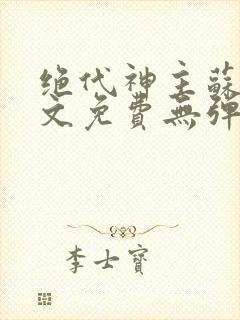 绝代神主蘇
文免費無彈
李士寶